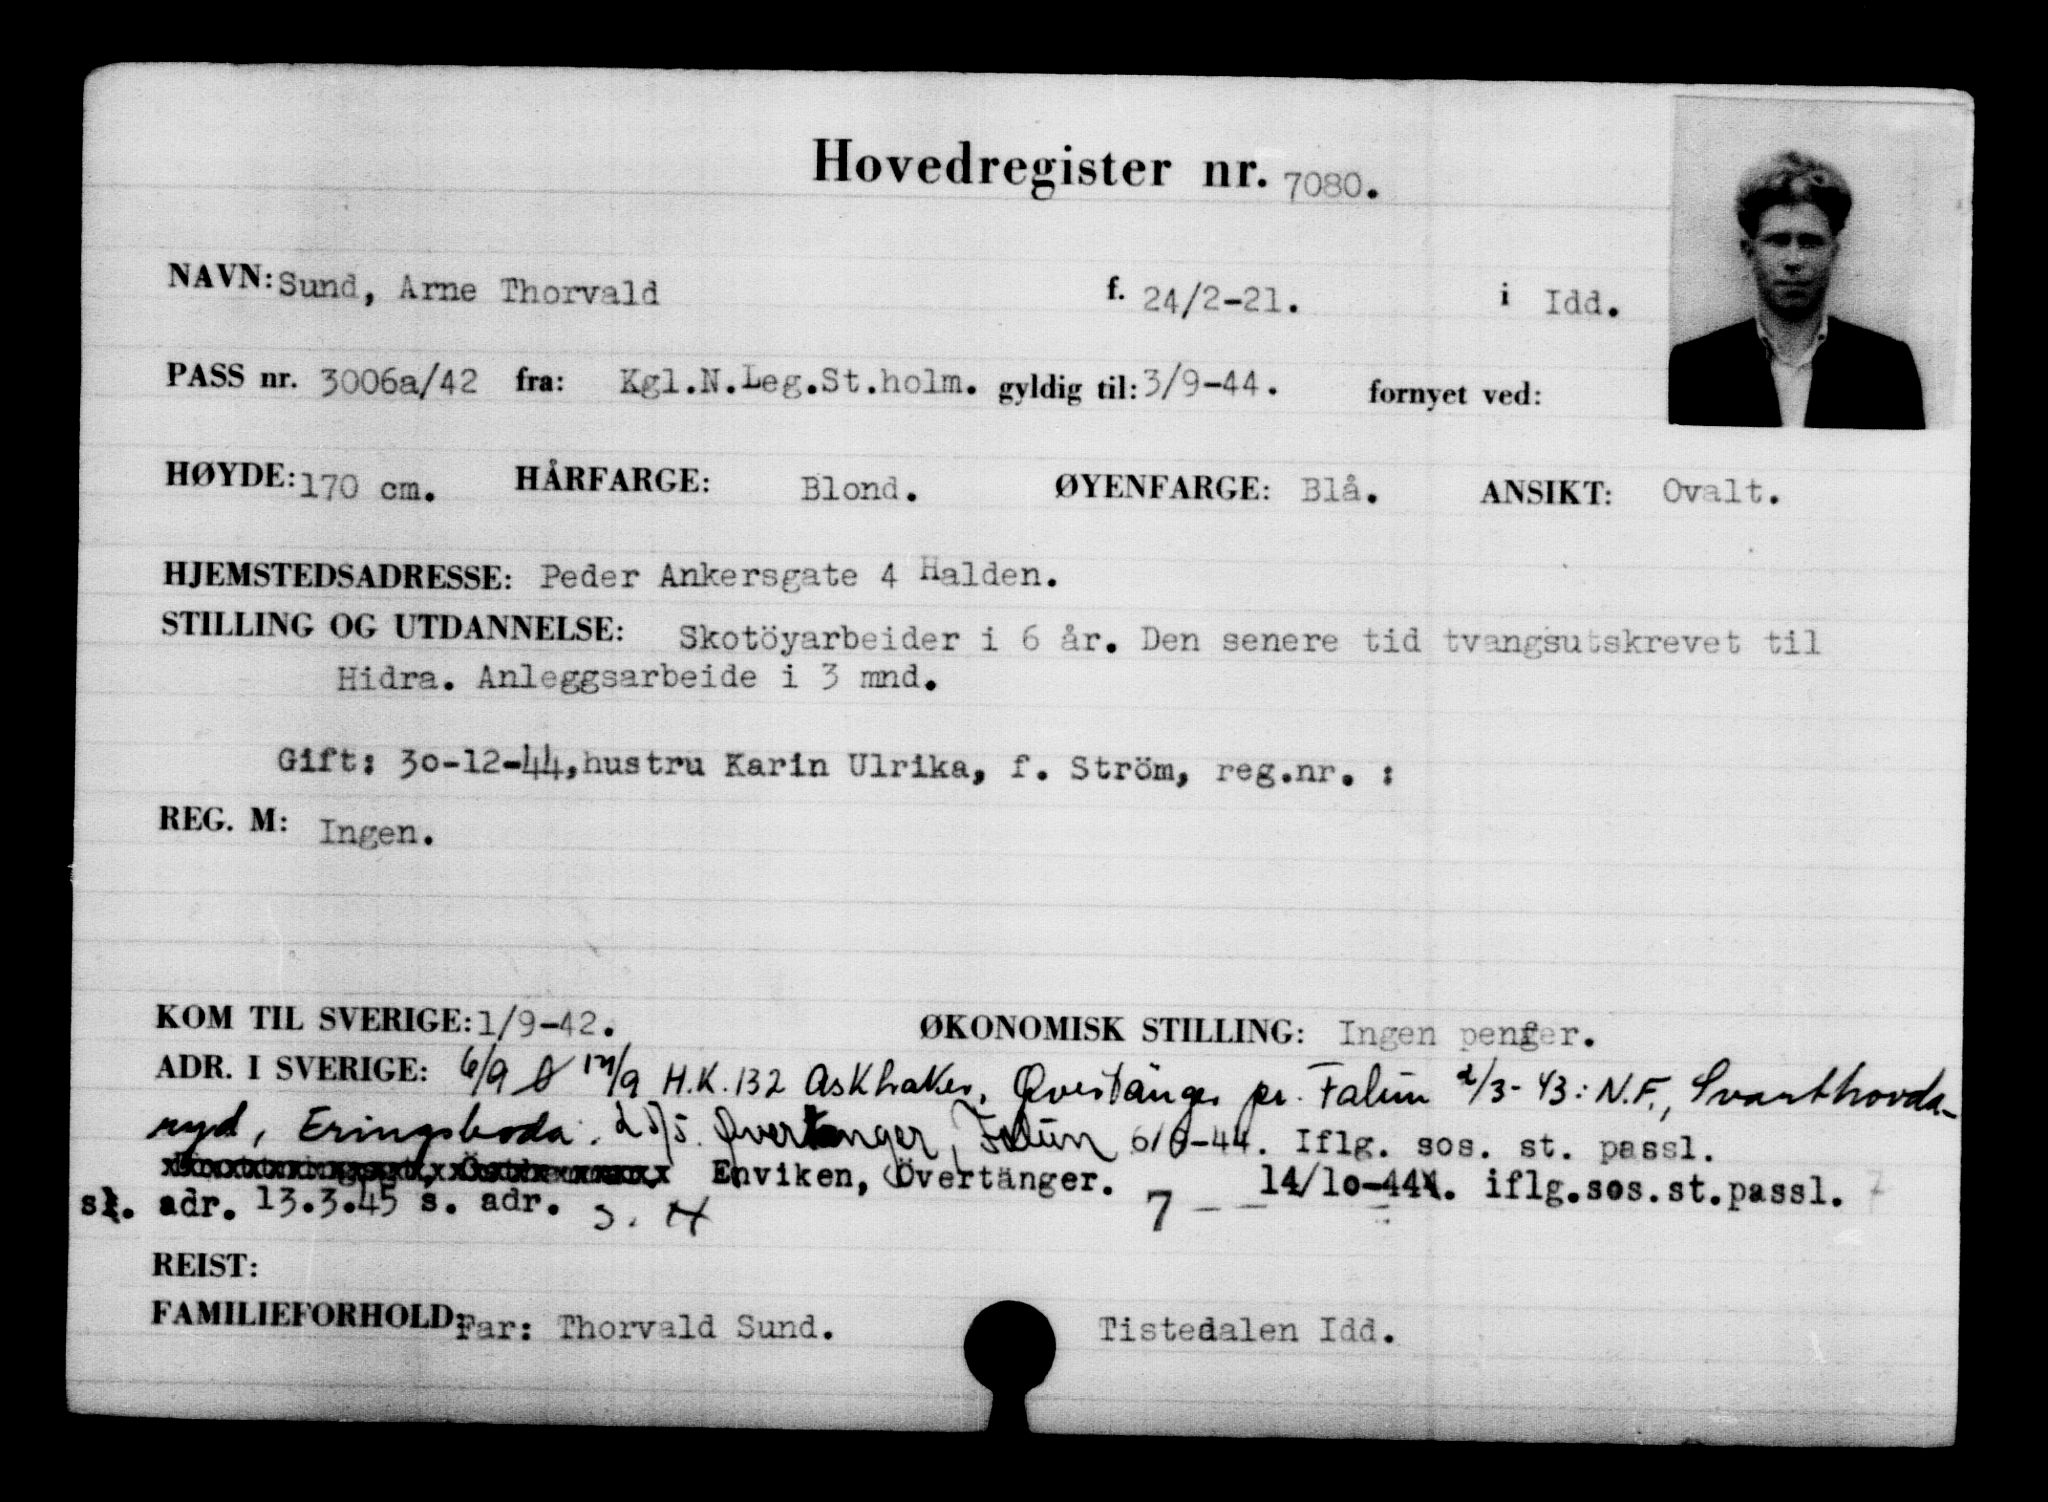 Hovedregister nr. 7080.
NAVN: Sund, Arne Thorvald f. 24/2-21. i Idd.
PASS nr. 3006a/42 fra: Kgl.N.Leg.St.holm. gyldig til: 3/9-44. fornyet ved:
HØYDE: 170 cm. HÅRFARGE: Blond. ØYENFARGE: Blå. ANSIKT: Ovalt.
HJEMSTEDSADRESSE: Peder Ankersgate 4 Halden.
STILLING OG UTDANNELSE: Skotöyarbeider i 6 år. Den senere tid tvangsutskrevet til
Hidra. Anleggsarbeide i 3 mnd.
Gift: 30-12-44, hustru Karin Ulrika, f. Ström, reg.nr. :
REG. M: Ingen.
KOM TIL SVERIGE: 1/9-42. ØKONOMISK STILLING: Ingen penger.
ADR. I SVERIGE: 6/9 H.K. 132 Askhaker, Qvertänger pr. Falun 2/3-43: N.F., Svarthovda-
ryd, Eringsboda. Qvertanger, Falun 6/6-44. Iflg. sos. st. passl.
Enviken, Övertänger. 14/10-44. iflg.sos.st.passl.
s. adr. 13.3.45 s. adr. 7
REIST:
FAMILIEFORHOLD: Far: Thorvald Sund. Tistedalen Idd.